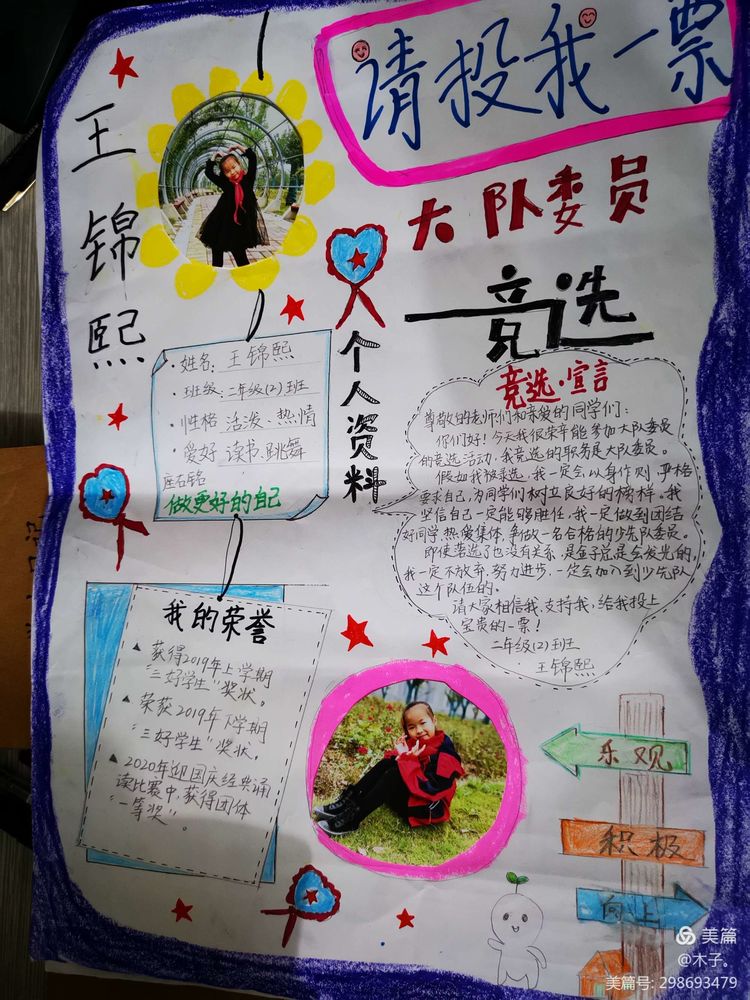 请投我一票
王锦熙
大队委员
竞选
个人资料
·姓名:王锦熙
·班级:二年级(2)班
·性格 活泼、热情
·爱好 读书、跳舞
座右铭
做更好的自己
竞选·宣言
尊敬的老师们和亲爱的同学们:
你们好!今天我很荣幸能参加大队委员
的竞选活动,我竞选的职务是大队委员。
假如我被录选,我一定会以身作则,严格
要求自己,为同学们树立良好的榜样。我
坚信自己一定能够胜任,我一定做到团结
好同学,热爱集体,争做一名合格的少先队委员。
即使落选了也没有关系,是金子总是会发光的,
我一定不放弃,努力进步,一定会加入到少先队
这个队伍的。
请大家相信我,支持我,给我投上
宝贵的一票!
二年级(2)班
王锦熙
我的荣誉
▲获得2019年上学期
“三好学生”奖状。
▲荣获2019年下学期
“三好学生”奖状。
▲2020年迎国庆经典诵
读比赛中,获得团体
“一等奖”。
乐观
积极
向上
美篇
@木子。
美篇号: 298693479